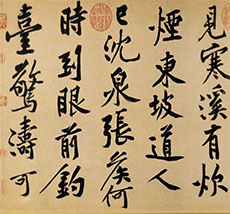 見寒溪有炊
煙東坡道人
已沈泉張侯何
時到眼前釣
臺驚濤可